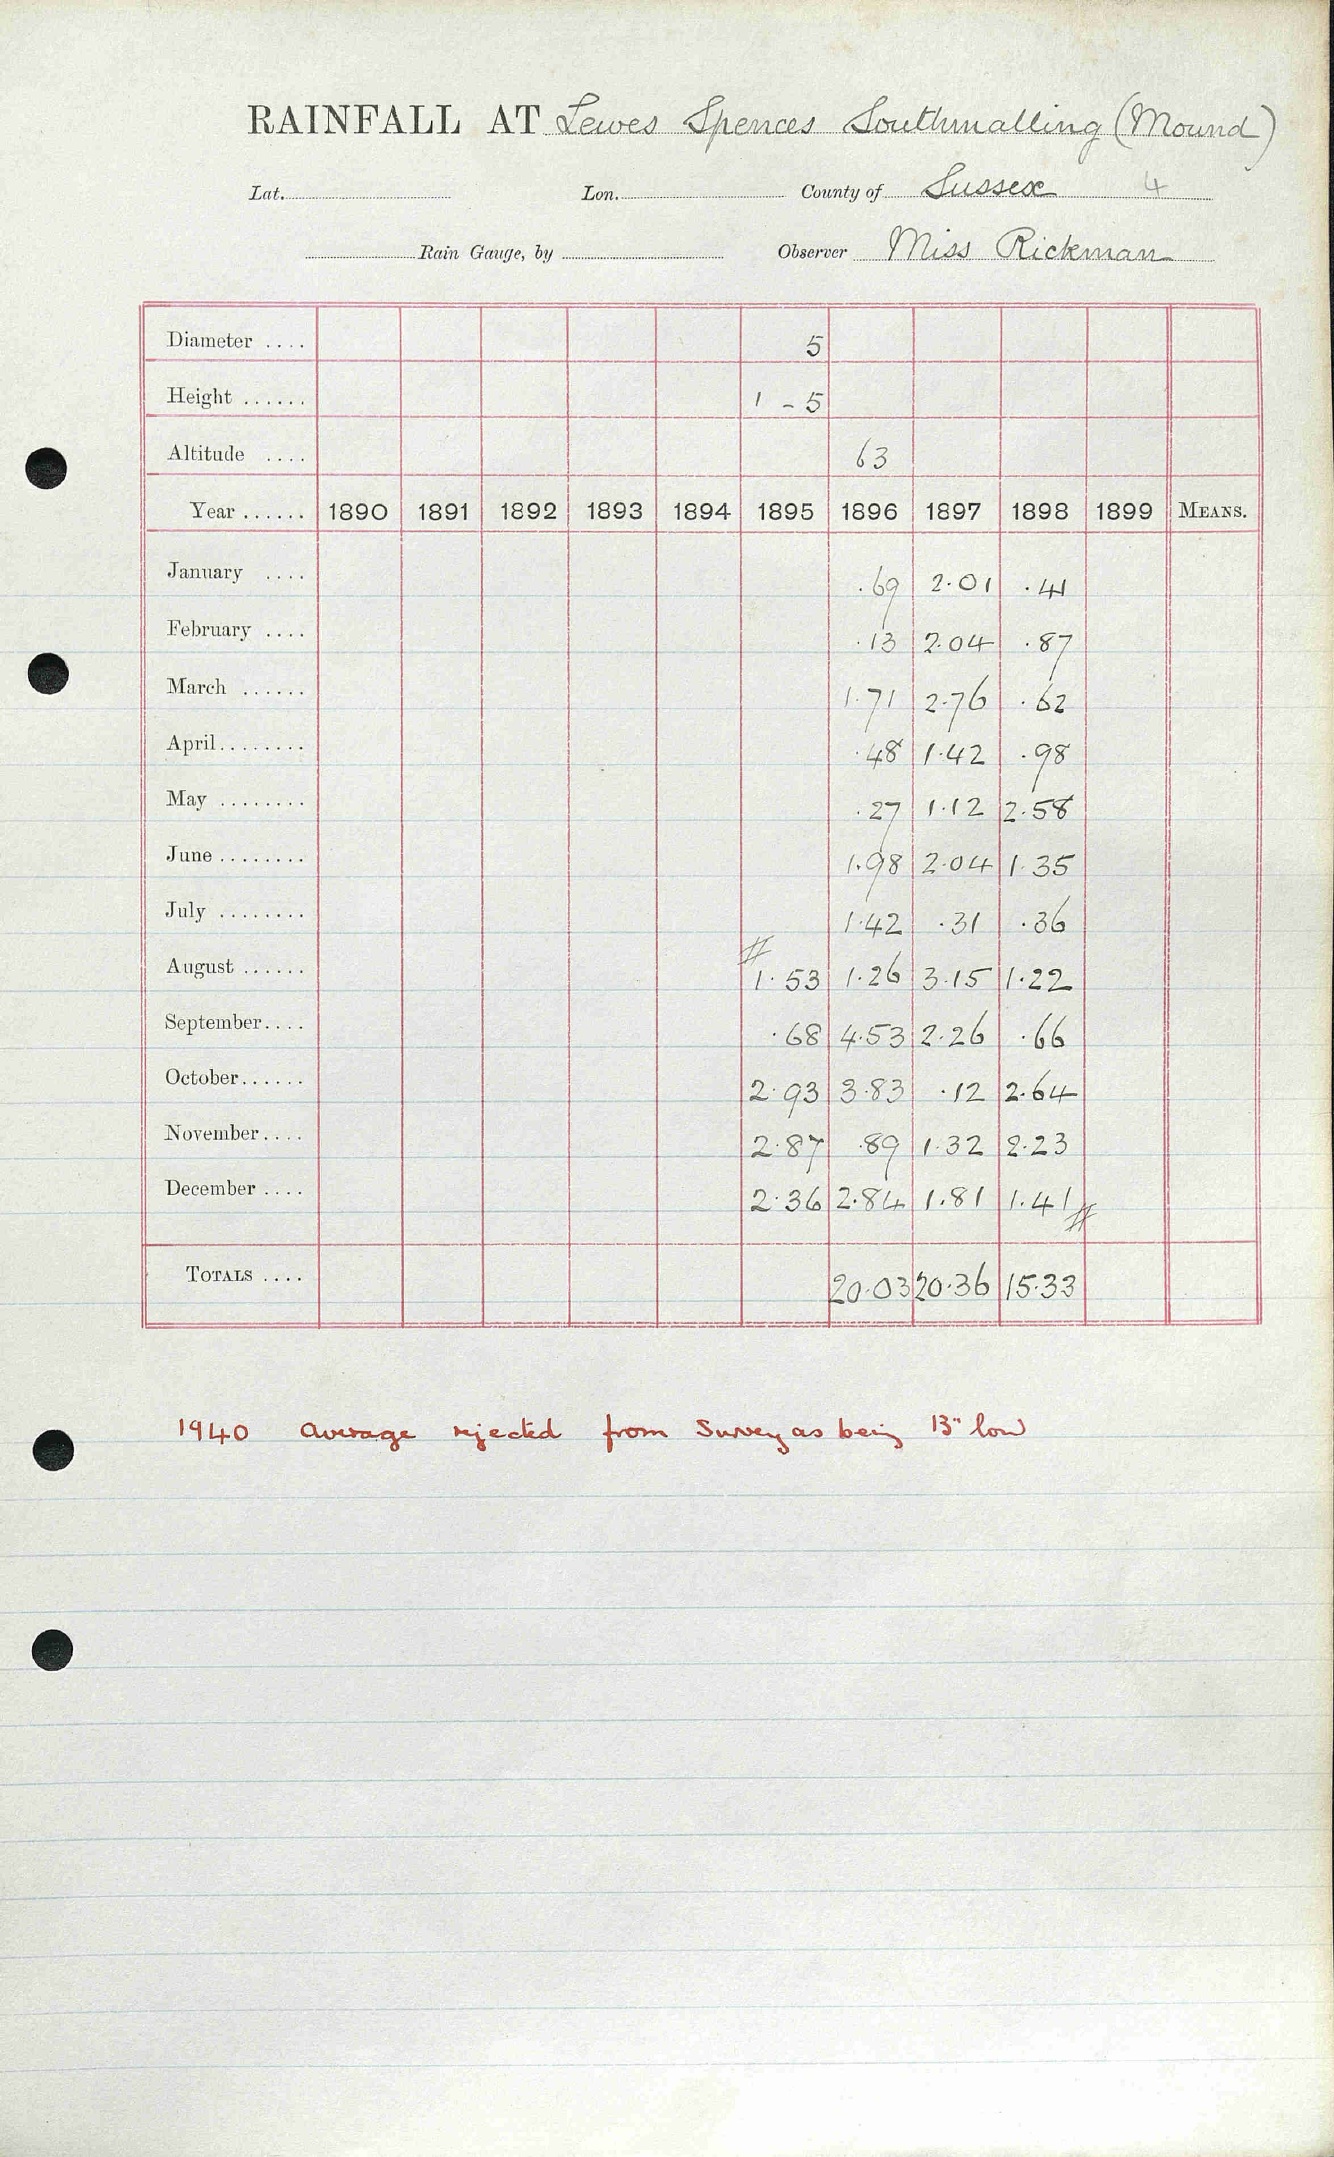 RAINFALL AT Lewes Spences Southmalling (Mound)
Lat. Lon. County of Sussex 4
Rain Gauge, by Observer Miss Rickman
Diameter .... 5
Height ...... 1 - 5
Altitude .... 63
Year ...... 1890 1891 1892 1893 1894 1895 1896 1897 1898 1899 MEANS.
January .... .69 2.01 .41
February .... .13 2.04 .87
March ...... 1.71 2.76 .62
April........ .48 1.42 .98
May ........ .27 1.12 2.58
June ........ 1.98 2.04 1.35
July ........ 1.42 .31 .36
#
August ...... 1.53 1.26 3.15 1.22
September.... .68 4.53 2.26 .66
October...... 2.93 3.83 .12 2.64
November.... 2.87 .89 1.32 2.23
December .... 2.36 2.84 1.81 1.41 #
TOTALS .... 20.03 20.36 15.33
1940 Average rejected from Survey as being 13" low